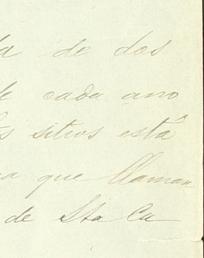 de dos
de cada ano
sitios está
que llaman
de Sta Ca